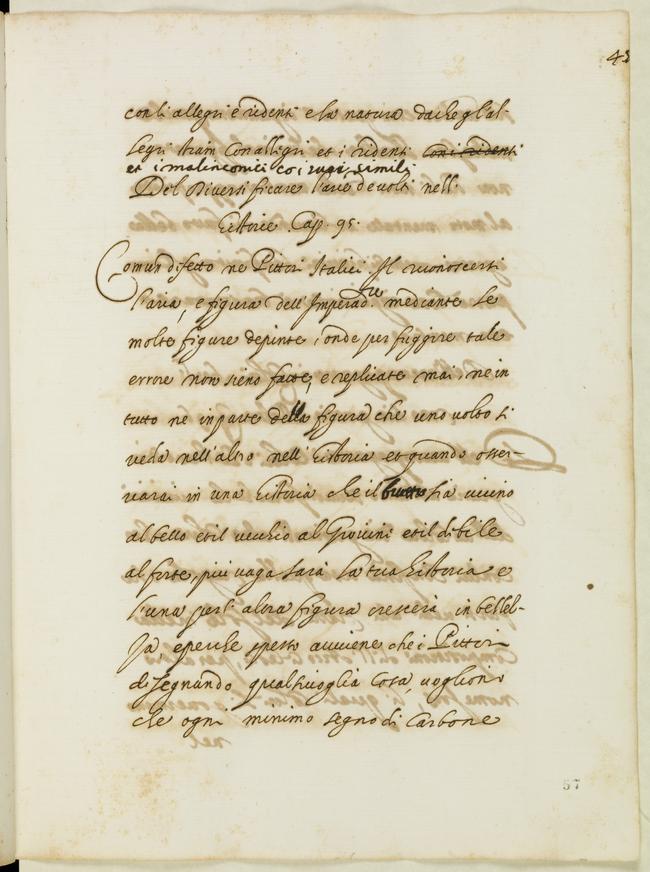 45
con li allegri e ridenti e la natura da che gl'al-
legri stiain con allegri et i ridenti con i ridenti
et i malinconici co i suoi simili
Del Diversificare l'arie de volti nell'
Istorie. Cap. 95.
Comun difetto ne Pittori Italici Il riconoscersi
l'aria, e figura dell'Imperad.re mediante le
molte figure depinte, onde per fuggire tale
errore non sieno fatte, e replicate mai, ne in
tutto ne in parte della figura che uno volto si
veda nell'altro nell'Istoria et quando osser-
varai in una Istoria che il brutto sia vicino
al bello et il vecchio al Giovini et il dibile
al forte, più vaga sarà la tua historia e
l'una per l'altra figura crescerà in bellez-
za, e perche spesso avviene che i Pittori
disegnando qualsivoglia Cosa, vogliono
che ogni minimo segno di Carbone
57